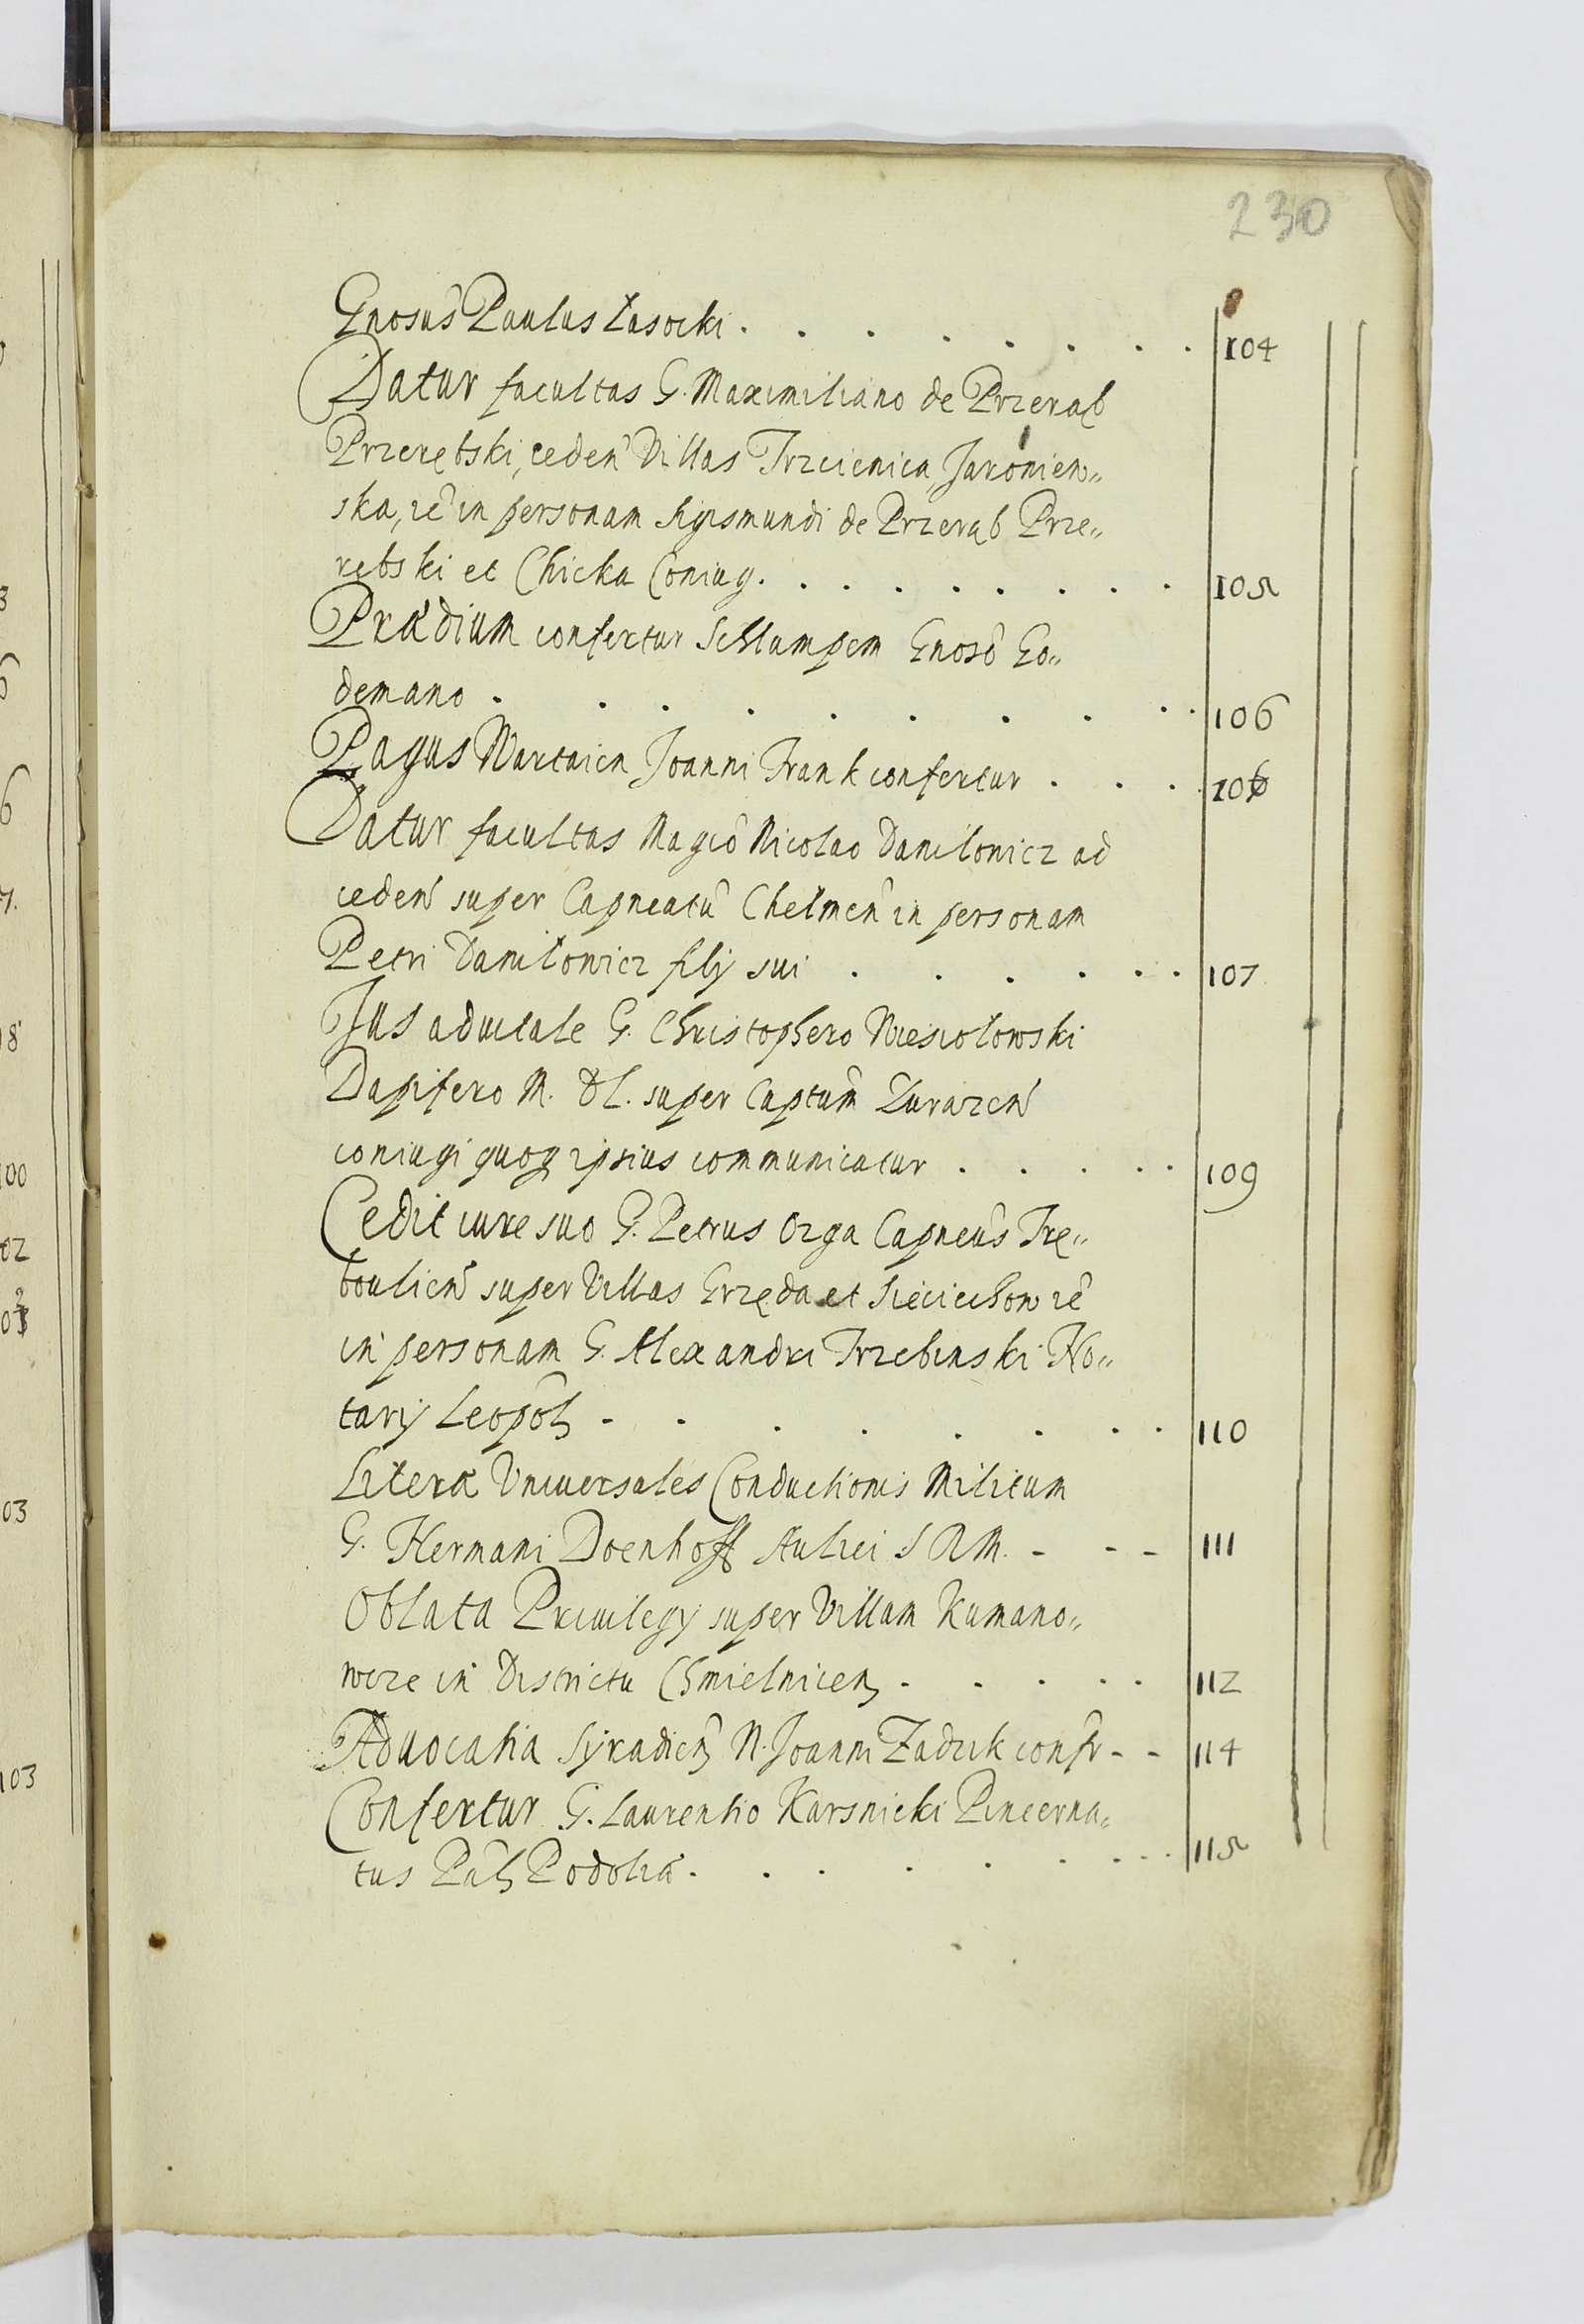 230
Gnosus Paulus Łasocki . . . . . . . . 104
Datur facultas G. Maximiliano de Przerąb
Przerębski, ceden Villas Trzcienica, Jaroniew„
ska, rē in personam Sigismundi de Przerąb Prze„
rębski et Chicka Coniug. . . . . . . . . 105
Prædium confertur Schlampem Gnoso Go„
demano . . . . . . . . . 106
Pagus Wartaicn Joanni Frank confertur . . . . 106
Datur facultas Magco Nicolao Daniłowicz ad
ceden super Capneatū Chełmen in personam
Petri Daniłowicz filij sui . . . . . . 107
Jus aduitale G. Christophero Wiesiołowski
Dapifero M. D L. super Captum Surazen
coniugi quoq ipsius communicatur . . . . . 109
Cedit iure suo G. Petrus Ozga Capneus Tre„
boulien super Villas Grzęda et Sieciechow rē
in personam G. Alexandri Trzebinski No„
tarij Leopol . . . . . . . . 110
Literæ Vniuersales Conductionis Militum
G. Hermani Doenhoff Aulici S R M. - - - 111
Oblata Priuilegij super Villam Kumano„
wcze in Districtu Chmielnicen . . . . . 112
Aduocatia Syradien N. Joanni Zadzik confr - - 114
Confertur G. Laurentio Karsnicki Pincerna„
tus Pal Podoliæ . . . . . . . . 115
8
00
02
03
103